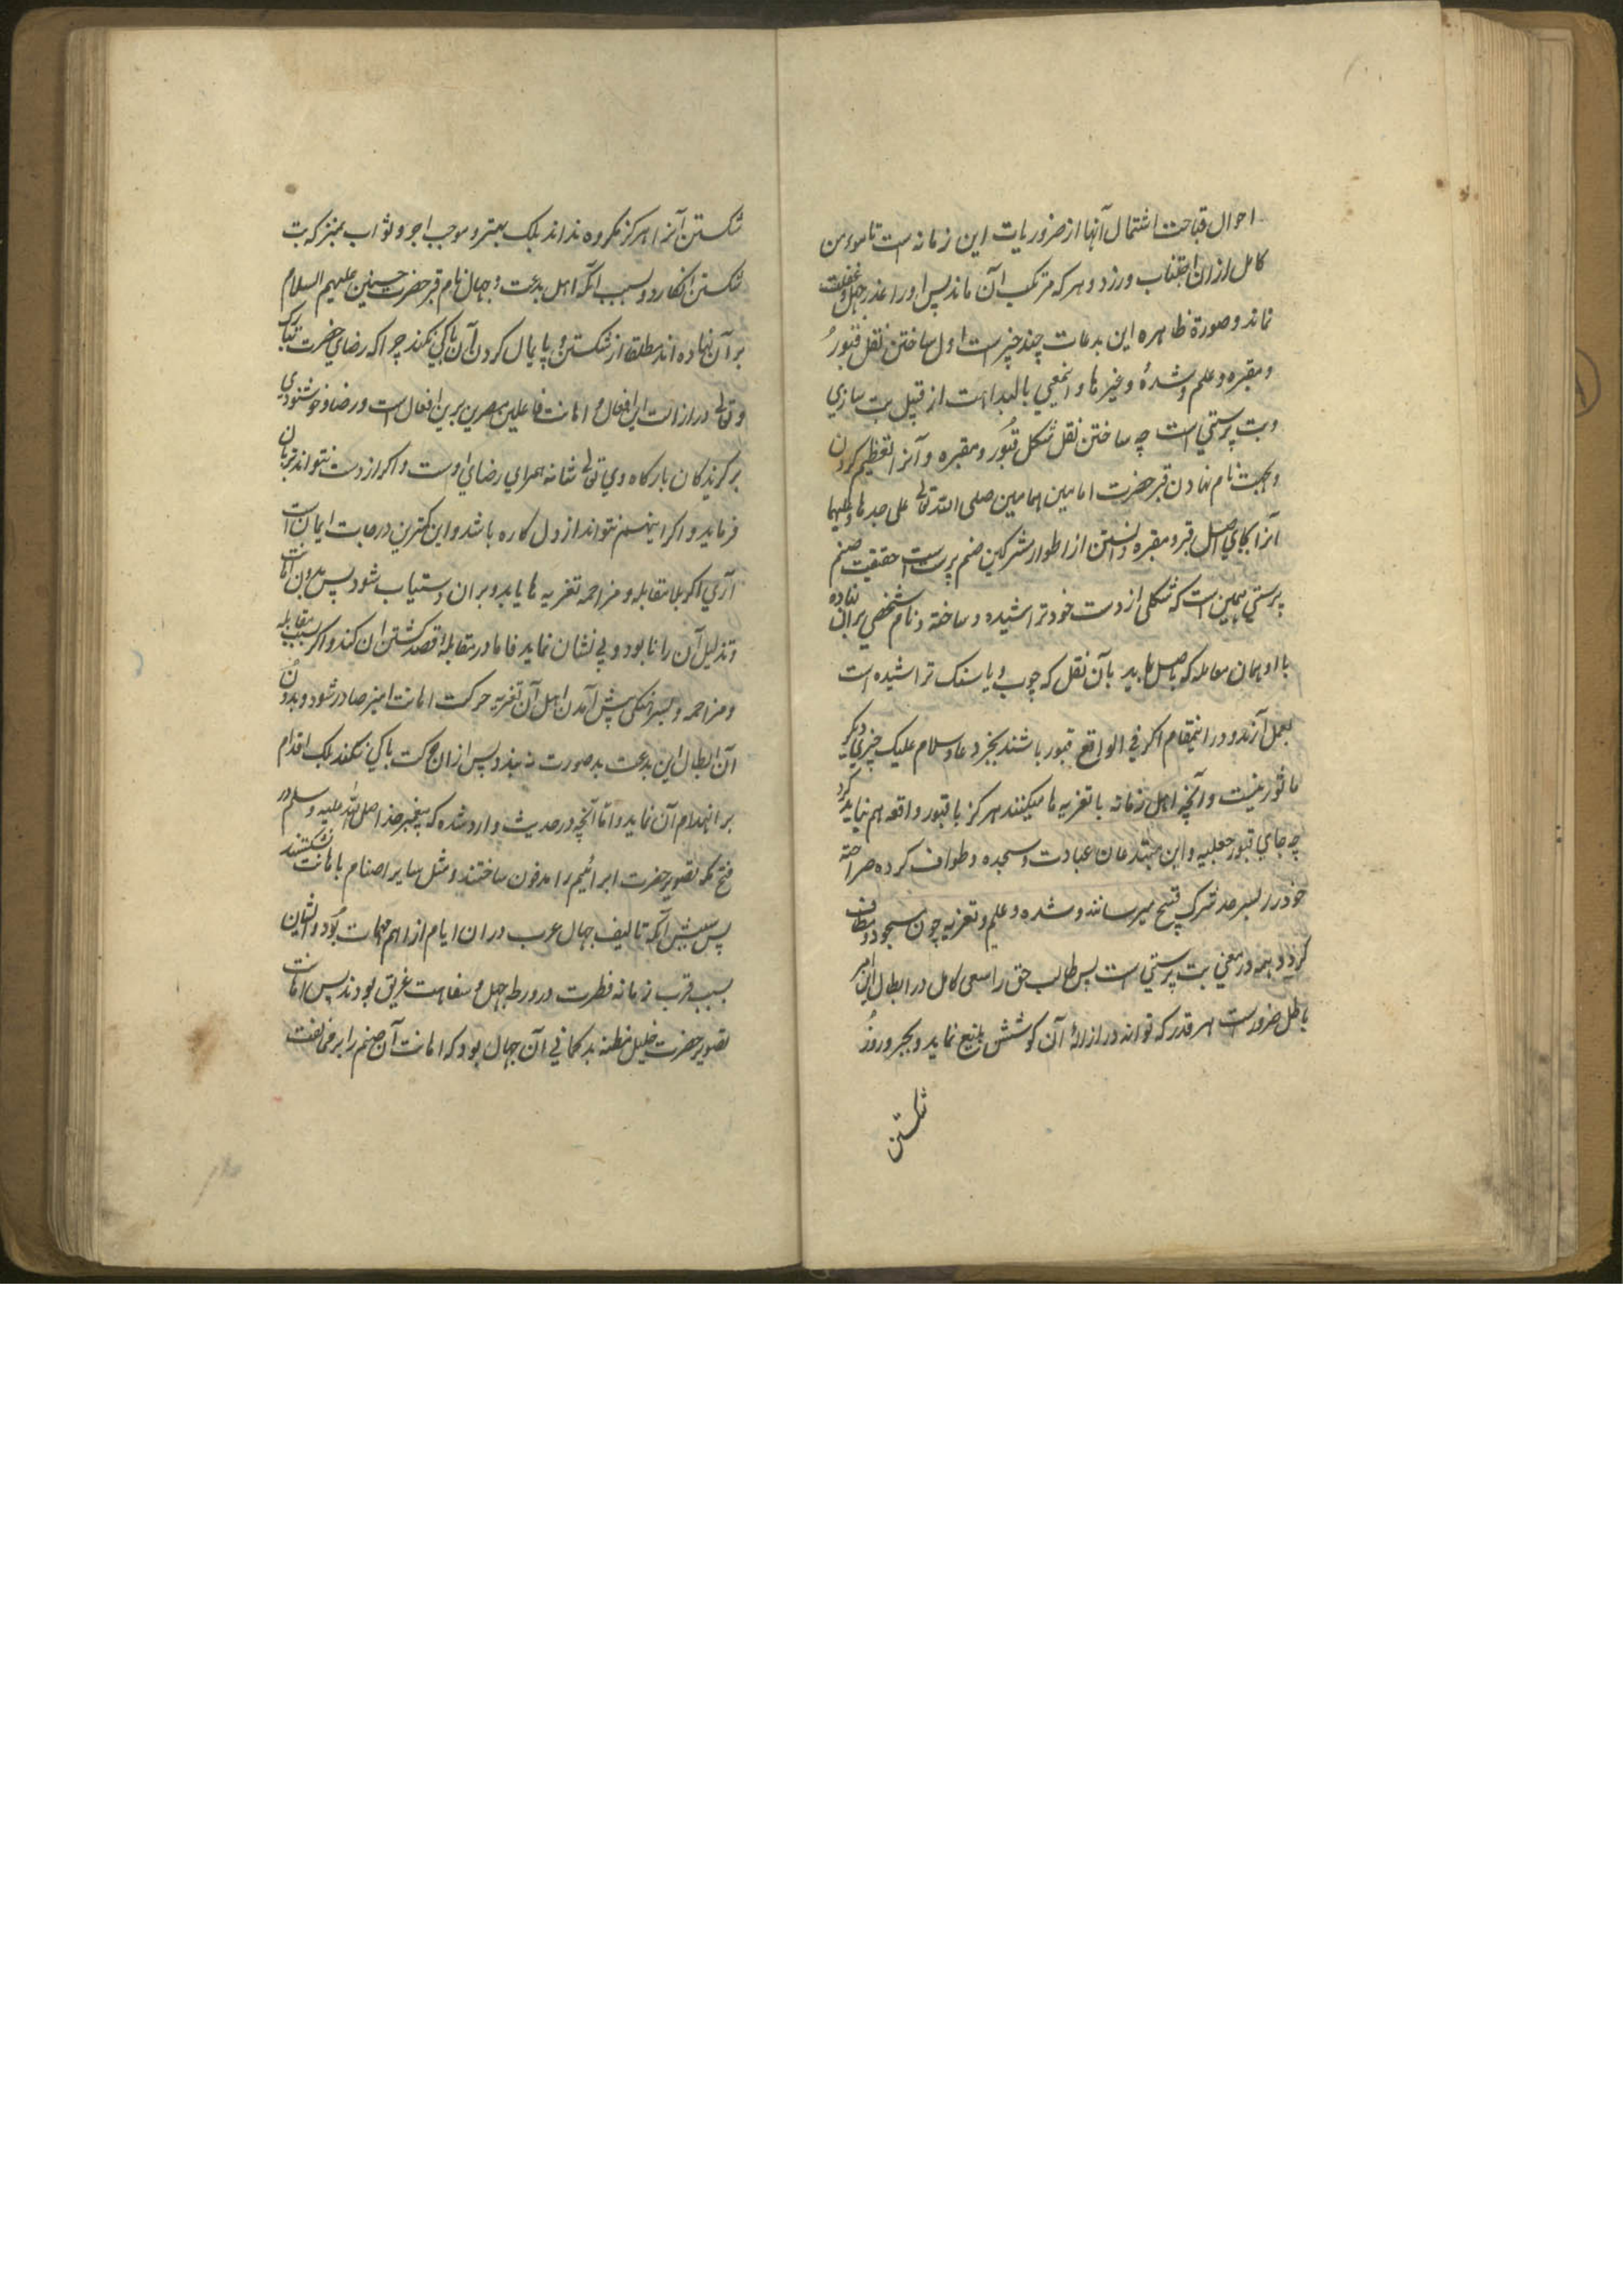 احوال قباحت اشتمال آنها از ضروریات این زمانه است تا مومن
کامل ازان اجتناب ورزد و هر که مرتکب آن ماند پس او را عذر جهل و غفلت
نماند و صورة ظاهره این بدعات چند چیز است اول ساختن نقل قبور
و مقبره و علم و شده و غیرها و اینمعنی بالبداهت از قبیل بت سازی
و بت پرستی است چه ساختن نقل شکل قبور و مقبره و آنرا تعظیم کردن
و بجهت نام نهادن قبر حضرت امامین همامین صلی الله تعالی علی جدهما و علیهما
آنرا بجای اصل قبر و مقبره دانستن از اطوار مشرکین صنم پرست است حقیقت صنم
پرستی همین است که شکلی از دست خود تراشیده و ساخته و نام شخصی بران نهاده
با او همان معامله که باصل باید بآن نقل که چوب و یا سنک تراشیده است
بعمل آرند و درانیمقام اکر فی الواقع قبور باشند بجز دعا و سلام علیک چیزی دیکر
ماثور نیست و آنچه اهل زمانه با تعزیه ها میکنند هر کز با قبور واقعه هم نباید کرد
چه جای قبور جعلیه و این مبتدعان عبادت و سجده و طواف کرده صراحة
خود را بسرحد شرک قبیح میرسانند و شده و علم و تعزیه چون مسجود و مطاف
کردید همه در معنی بت پرستی است پس طالب حق را سعی کامل در ابطال این امر
باطل ضرورست هر قدر که تواند در ازالۀ آن کوشش بلیغ نماید و بجبر و زور
شکستن
شکستن آنرا هر کز مکروه نداند بلکه بهتر و موجب اجر و ثواب بمنزله بت
شکستن انکارد و بسبب آنکه اهل بدعت و جهال نام قبر حضرت حسنین علیهم السلام
بر آن نهاده اند مطلقا از شکستن و پایمال کردن آن باکی نکند چرا که رضای حضرت تبارک
و تعالی در ازالت این افعال و اهانت فاعلین مصرین برین افعال است و رضا و خوشنودی
بر کزیدکان بارکاه وی تعالی شانه همرای رضای اوست و اکر از دست نتواند بزبان
فرماید و اکر اینهم نتواند از دل کاره باشد و این کمترین درجات ایمان است
آری اکر بلا مقابله و مزاحمه تعزیه ها یابد و بران دستیاب شود پس بدون اهانت
و تذلیل آن را نابود و بی نشان نماید فاما در مقابله قصد شکستن آن کند و اکر بسبب مقابله
و مزاحمه و پیش آمدن اهل آن تعزیه حرکت اهانت امیز صادر شود و بدون
آن ابطال این بدعت بد صورت نه بندد پس ازان حرکت باکی نکند بلکه اقدام
بر انهدام آن نماید و اما آنچه در حدیث وارد شده که پیغمبر خدا صلی الله علیه و سلم در
فتح مکه تصویر حضرت ابراهیم را مدفون ساختند و مثل سایر اصنام باهانت نشکستند
پس سببش آنکه تالیف جهال عرب دران ایام از اهم مهمات بود و ایشان
بسبب قرب زمانه فطرت در ورطه جهل و سفاهت غریق بودند پس اهانت
تصویر حضرت خلیل مظنه بد کمانی آن جهال بود که اهانت آن صنم را بر مخالفت